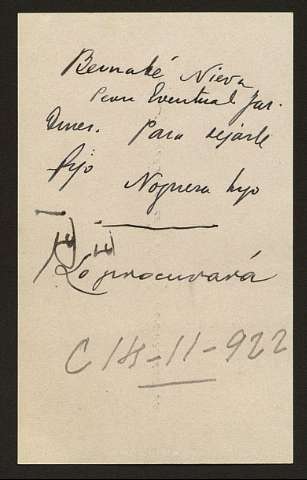 Bernabé Nieva
Peon Eventual Jar-
dines. Para dejarle
fijo
Noguera hijo
Lo procurará
C 14-11-922